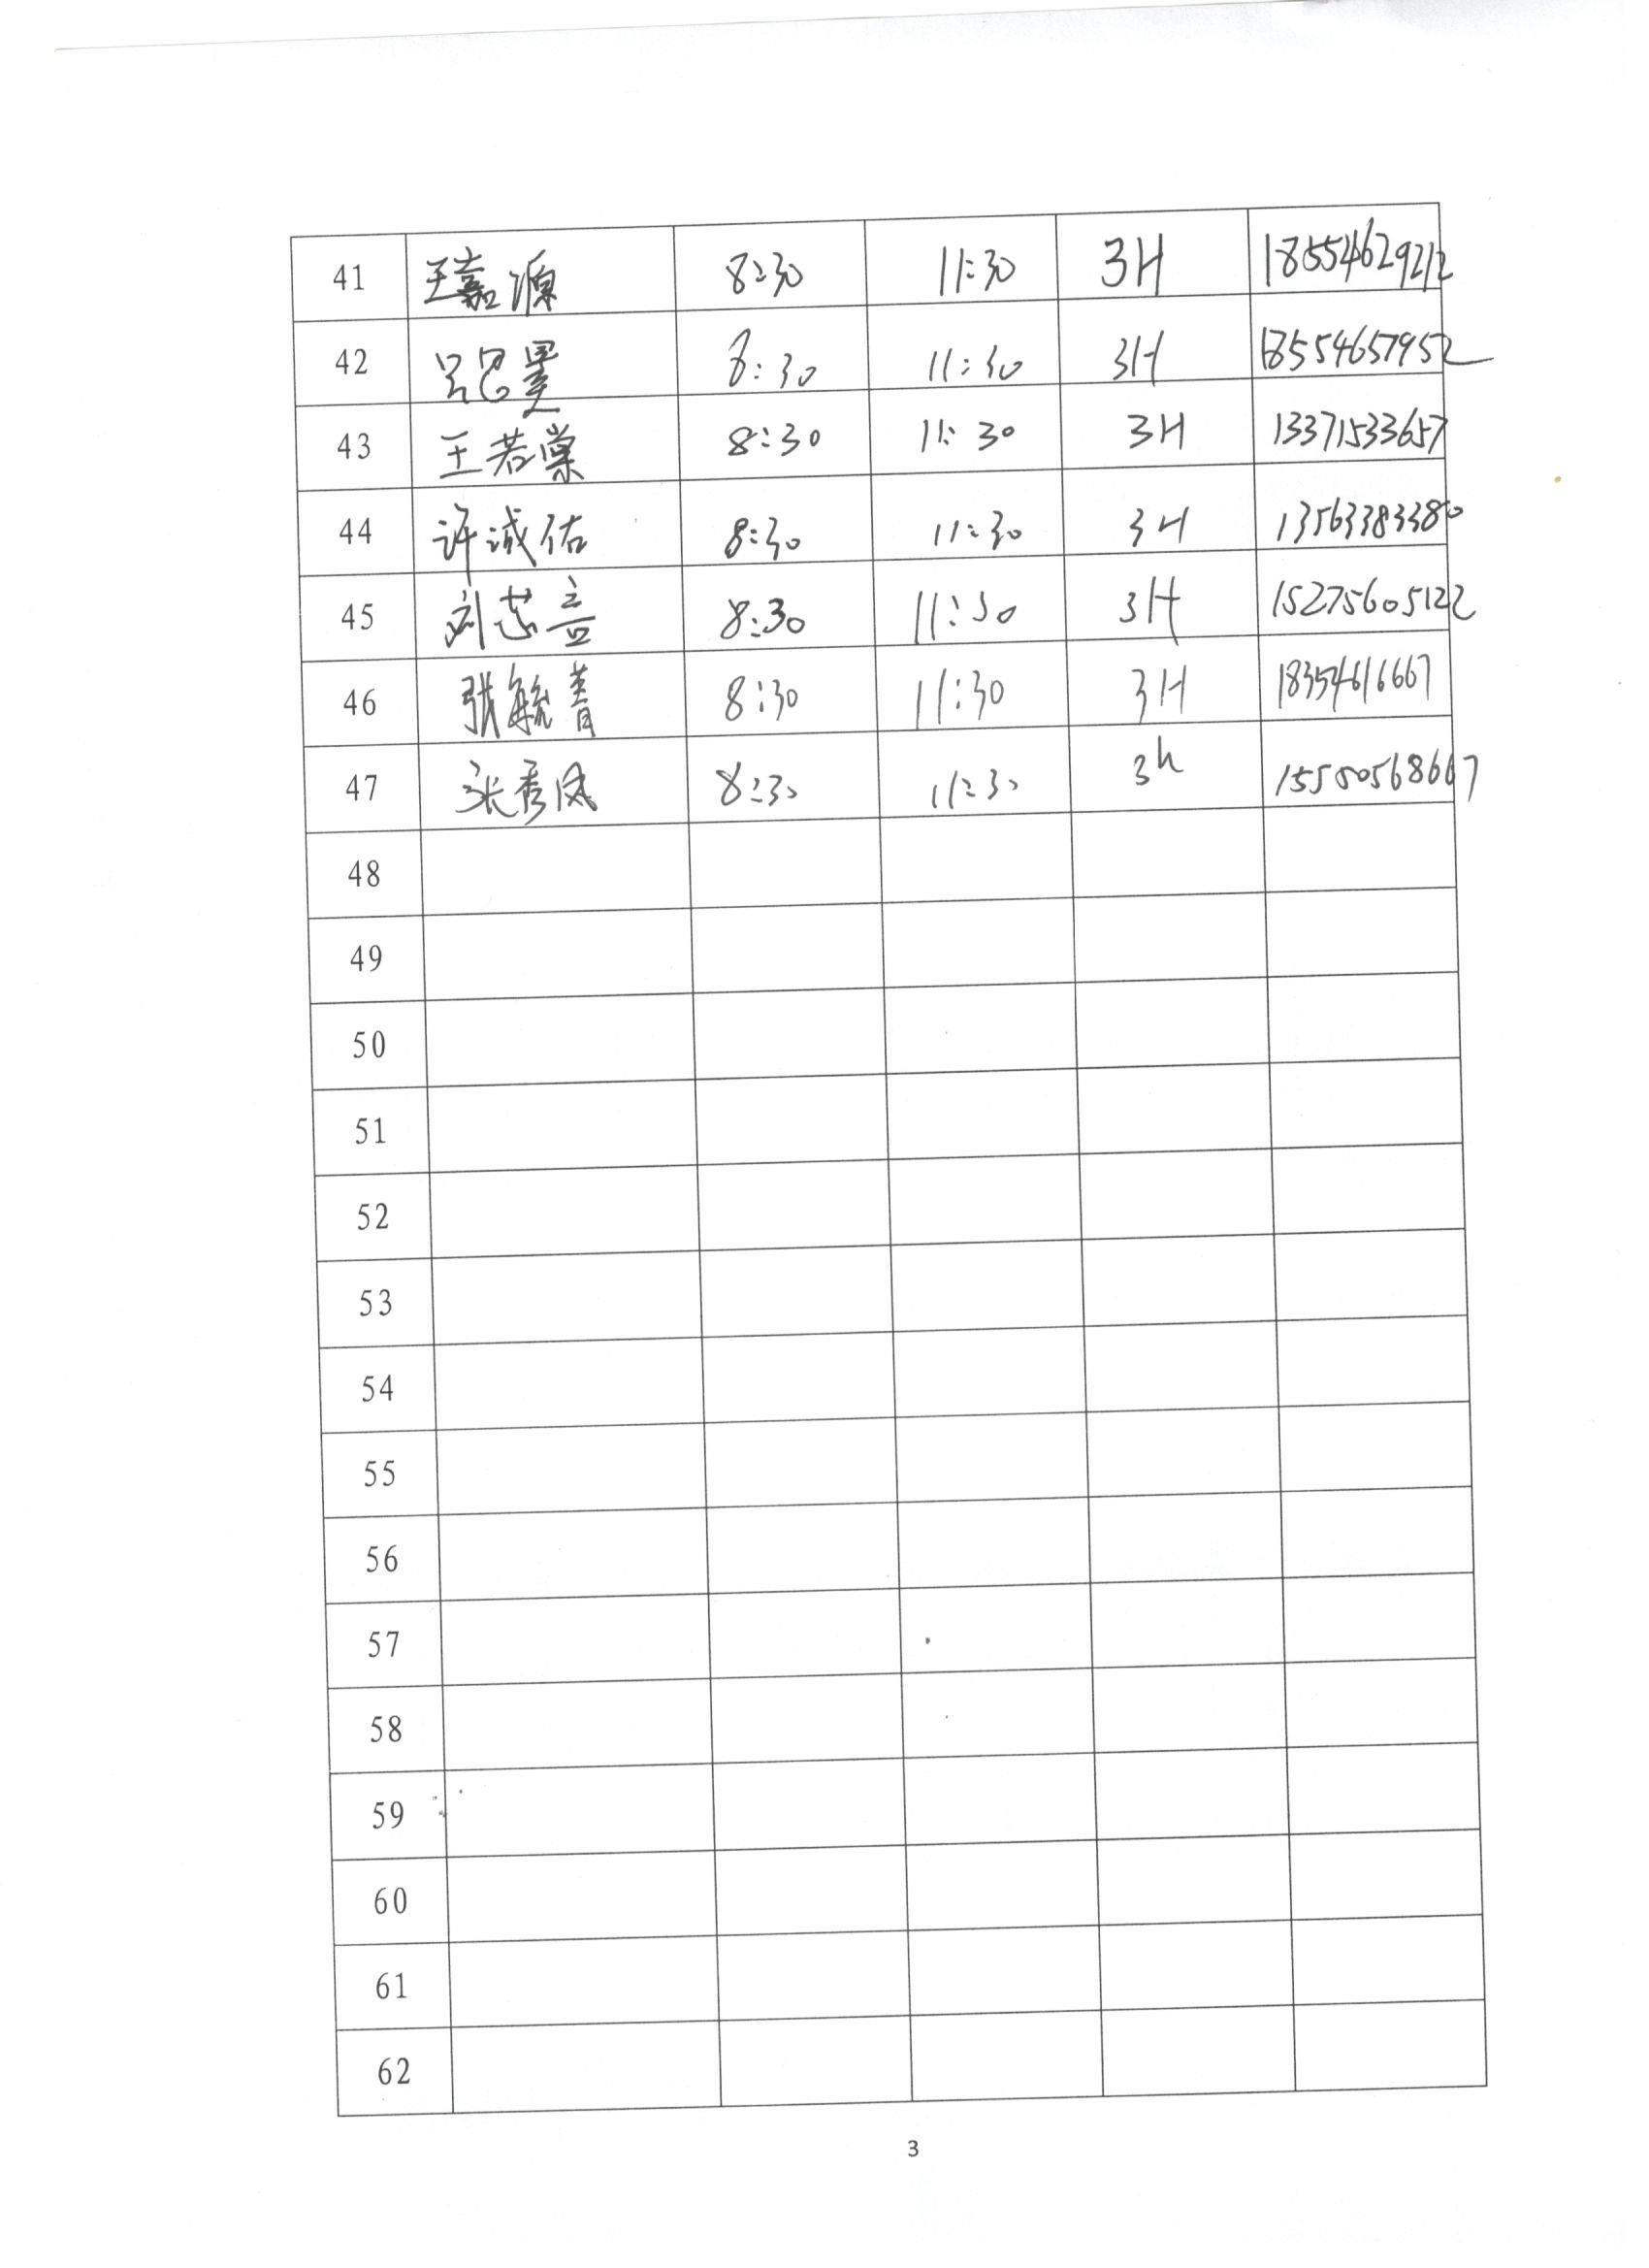 41 王嘉源 8:30 11:30 3H 18554629212
42 8:30 11:30 3H 18554657952
43 王若棠 8:30 11:30 3H 13371533657
44 许诚佑 8:30 11:30 3H 13563383380
45 刘芯言 8:30 11:30 3H 15275605122
46 张毓菁 8:30 11:30 3H 18354616667
47 张秀凤 8:30 11:30 3h 15550568667
48
49
50
51
52
53
54
55
56
57
58
59
60
61
62
3